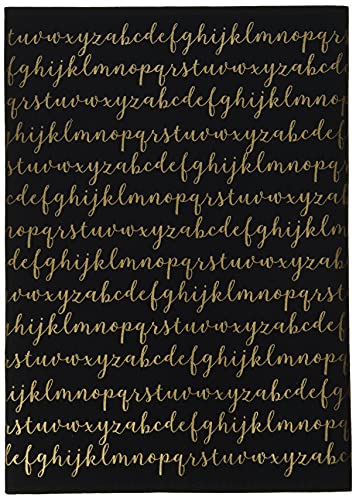 tuvwxyzabcdefghijklmnopqrs
fghijklmnopqrstuvwxyzabcdef
qrstuvwxyzabcdefghijklmno
ghijklmnopqrstuvwxyzabcdef
stuvwxyzabcdefghijklmnopqr
klmnopqrstuvwxyzabcdefghi
mnopqrstuvwxyzabcdefghijkl
defghijklmnopqrstuvwxyzabc
uvwxyzabcdefghijklmnopqrst
ghijklmnopqrstuvwxyzabcdef
stuvwxyzabcdefghijklmnopqr
ijklmnopqrstuvwxyzabcdefg
qrstuvwxyzabcdefghijklmno
defghijklmnopqrstuvwxyzabc